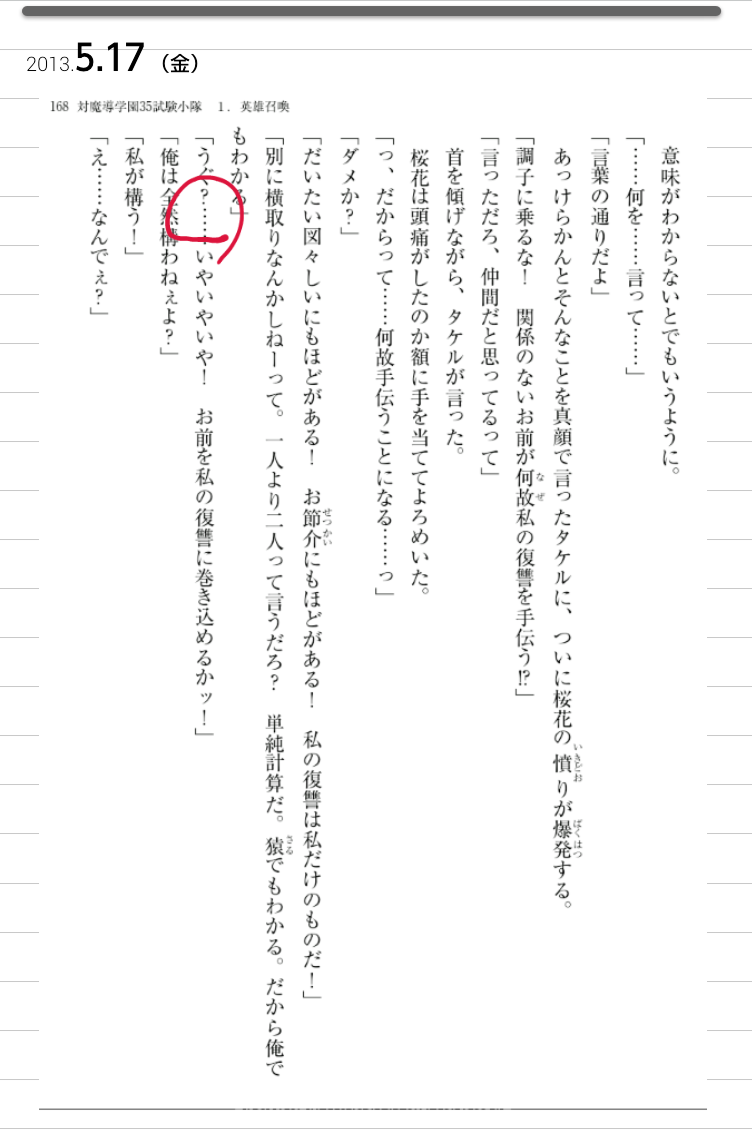 2013.5.17（金）
168 対魔導学園35試験小隊　1．英雄召喚
意味がわからないとでもいうように。
「……何を……言って……」
「言葉の通りだよ」
あっけらかんとそんなことを真顔で言ったタケルに、ついに桜花の憤りが爆発する。
「調子に乗るな！　関係のないお前が何故私の復讐を手伝う!?」
「言っただろ、仲間だと思ってるって」
首を傾げながら、タケルが言った。
桜花は頭痛がしたのか額に手を当ててよろめいた。
「っ、だからって……何故手伝うことになる……っ」
「ダメか？」
「だいたい図々しいにもほどがある！　お節介にもほどがある！　私の復讐は私だけのものだ！」
「別に横取りなんかしねーって。一人より二人って言うだろ？　単純計算だ。猿でもわかる。だから俺で
もわかる」
「うぐ？……いやいやいや！　お前を私の復讐に巻き込めるかッ！」
「俺は全然構わねぇよ？」
「私が構う！」
「え……なんでぇ？」